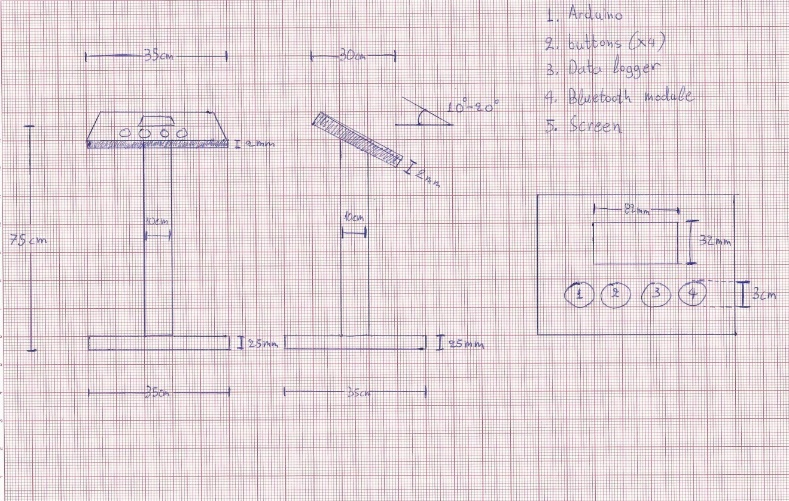 1. Arduino
2. buttons (x4)
3. Data logger
4. Bluetooth module
5. Screen
35cm
30cm
10°-20°
2mm
2mm
75cm
10cm
10cm
25mm
25mm
35cm
35cm
82mm
32mm
1 2 3 4
3cm